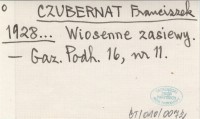 o
CZUBERNAT Franciszek
1928... Wiosenne zasiewy.
— Gaz. Podh. 16, nr 11.